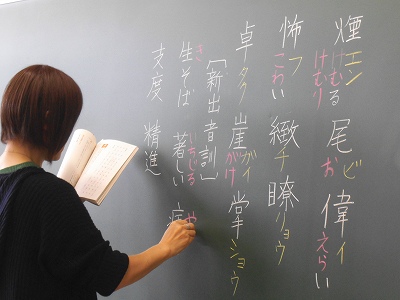 煙 エン けむる けむり 尾 ビ お 偉 イ えらい
怖 フ こわい 緻 チ 瞭 リョウ
卓 タク 崖 ガイ がけ 掌 ショウ
「新出音訓」
生そば き 著しい いちじる や
支度 精進